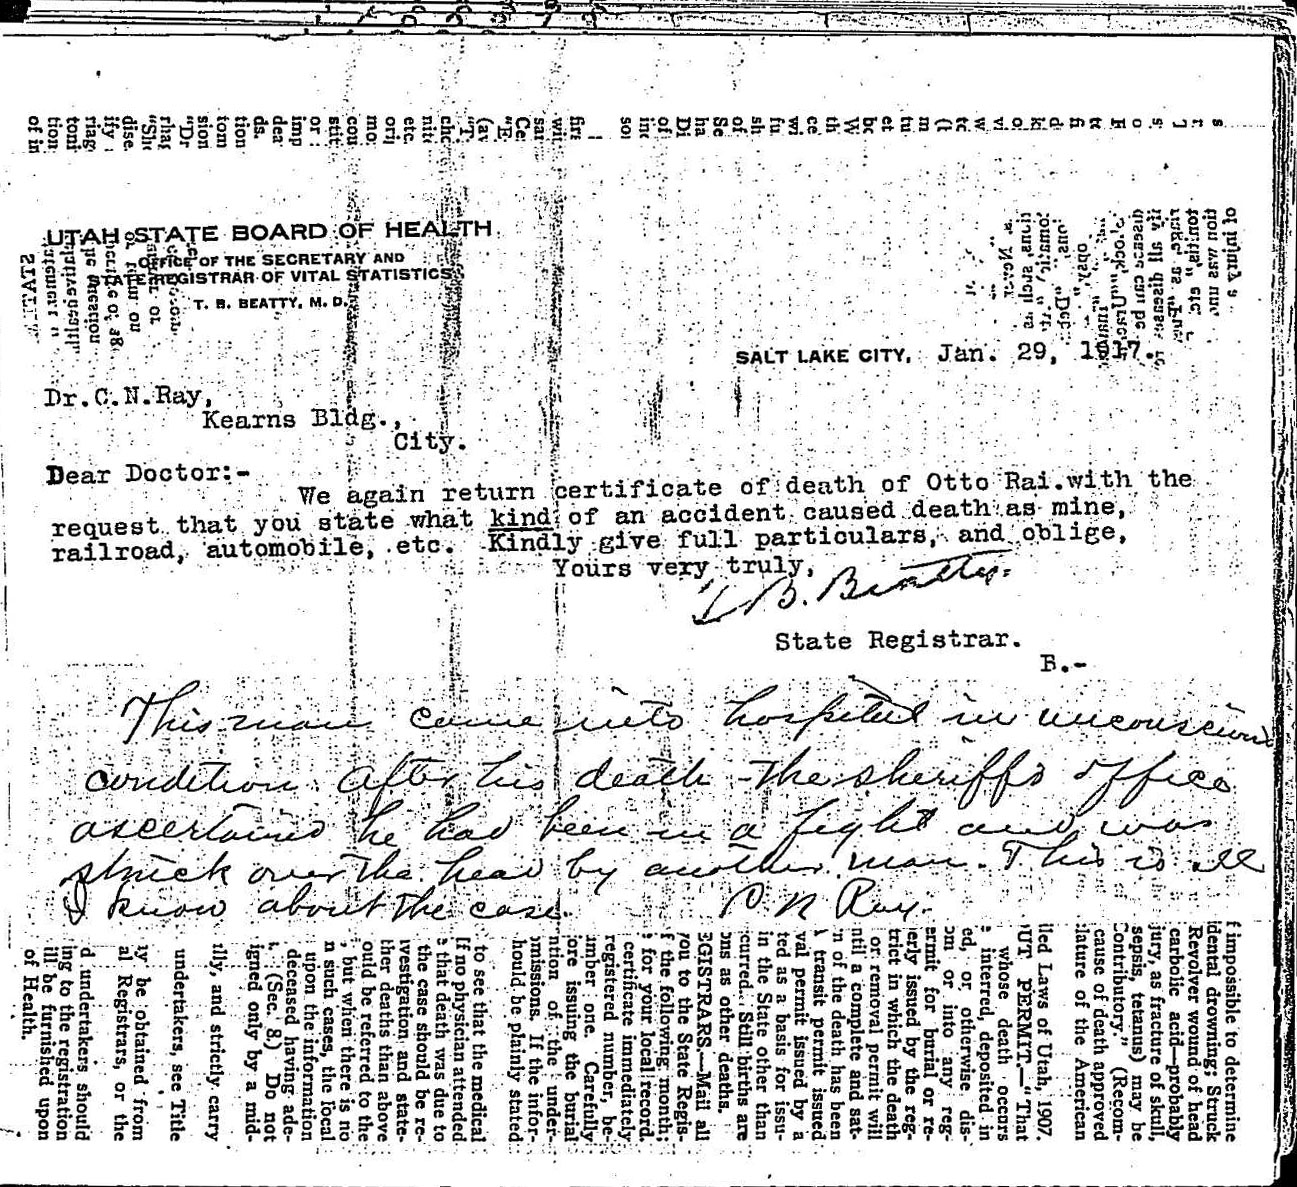 UTAH STATE BOARD OF HEALTH
OFFICE OF THE SECRETARY AND
STATE REGISTRAR OF VITAL STATISTICS
T. B. BEATTY, M. D.
SALT LAKE CITY, Jan. 29, 1917.
Dr.C.N.Ray,
Kearns Bldg.,
City.
Dear Doctor:-
We again return certificate of death of Otto Rai.with the
request that you state what kind of an accident caused death as mine,
railroad, automobile, etc. Kindly give full particulars, and oblige,
Yours very truly,
T. B. Beatty.
State Registrar.
B.-
This man came into hospital in unconscious
condition. After his death the sheriff's office
ascertained he had been in a fight and was
struck over the head by another man. This is all
I know about the case. C N Ray.
f impossible to determine
idental drowning; Struck
Revolver wound of head
carbolic acid—probably
jury, as fracture of skull,
sepsis, tetanus) may be
Contributory." (Recom-
cause of death approved
lature of the American
iled Laws of Utah, 1907.
UT PERMIT.—"That
whose death occurs
interred, deposited in
ed, or otherwise dis-
om or into any reg-
ermit for burial or re-
erly issued by the reg-
trict in which the death
or removal permit will
ntil a complete and sat-
n of the death has been
transit permit issued
val permit issued by a
ted as a basis for issu-
in the State other than
curred. Still births are
ons as other deaths.
EGISTRARS.—Mail all
you to the State Regis-
f the following month;
for your local record.
certificate immediately
registered number, be-
umber one. Carefully
ore issuing the burial
ntion of the under-
missions. If the infor-
hould be plainly stated
to see that the medical
If no physician attended
that death was due to
the case should be re-
vestigation and state-
ther deaths than above
ould be referred to the
but when there is no
n such cases, the local
upon the information
deceased having ade-
(Sec. 8.) Do not
igned only by a mid-
lly, and strictly carry
undertakers, see Title
y be obtained from
al Registrars, or the
d undertakers should
ing to the registration
ill be furnished upon
of Health.